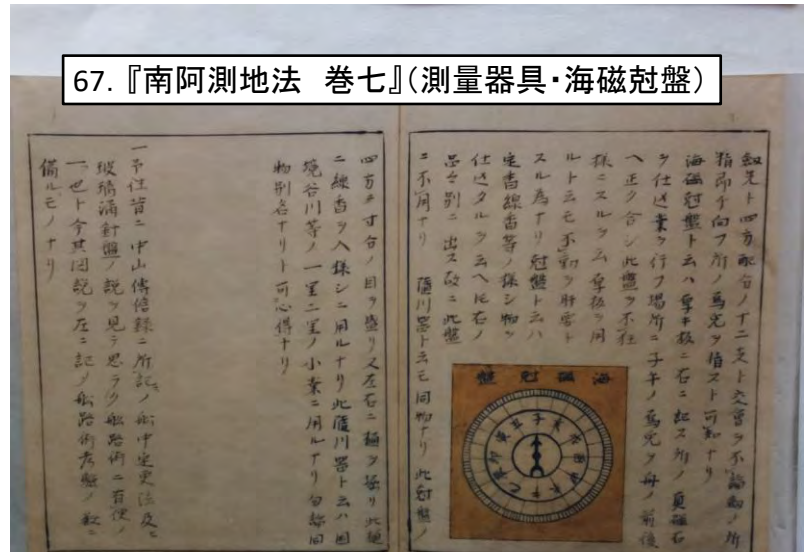 67.『南阿測地法　巻七』（測量器具・海磁尅盤）
劔先ト四方配合ノ十二支ト交會ヲ不論劔ノ所
指即チ向フ所ノ爲完ヲ指スト可知ナリ
海磁尅盤ト云ハ厚キ板ニ右ニ記ス所ノ真磁石
ヲ仕込業ヲ行フ場所ニ子午ノ爲完ヲ舟ノ前後
ヘ正ク合シ此盤ヲ不狂
様ニスルヲ云厚板ヲ用
ルト云モ不動ヲ肝要ト
スル為ナリ尅盤ト云ハ
定香線香等ノ様シ物ヲ
仕込タルヲ云ヘ圧右ノ
品ハ別ニ出ス故ニ此盤
ニ不用ナリ
海磁尅盤
薩川器ト云モ同物ナリ 此尅盤ノ
四方ニ寸合ノ目ヲ盛リ又左右ニ
ニ線香ヲ入様シニ用ルナリ此薩川器ト云ハ
境谷川等ノ一里二里ノ小業ニ用ルナリ
物別名ナリト可心得ナリ
一予往昔ニ中山傳信録ニ所記ノ舩中定更法及ヒ
玻璃漏針盤ノ説ヲ見テ思ラク舩路術ニ有使ノ
一ツ也ト今其図説ヲ左ニ記ノ舩路術考盤ノ数ニ
備ルモノナリ